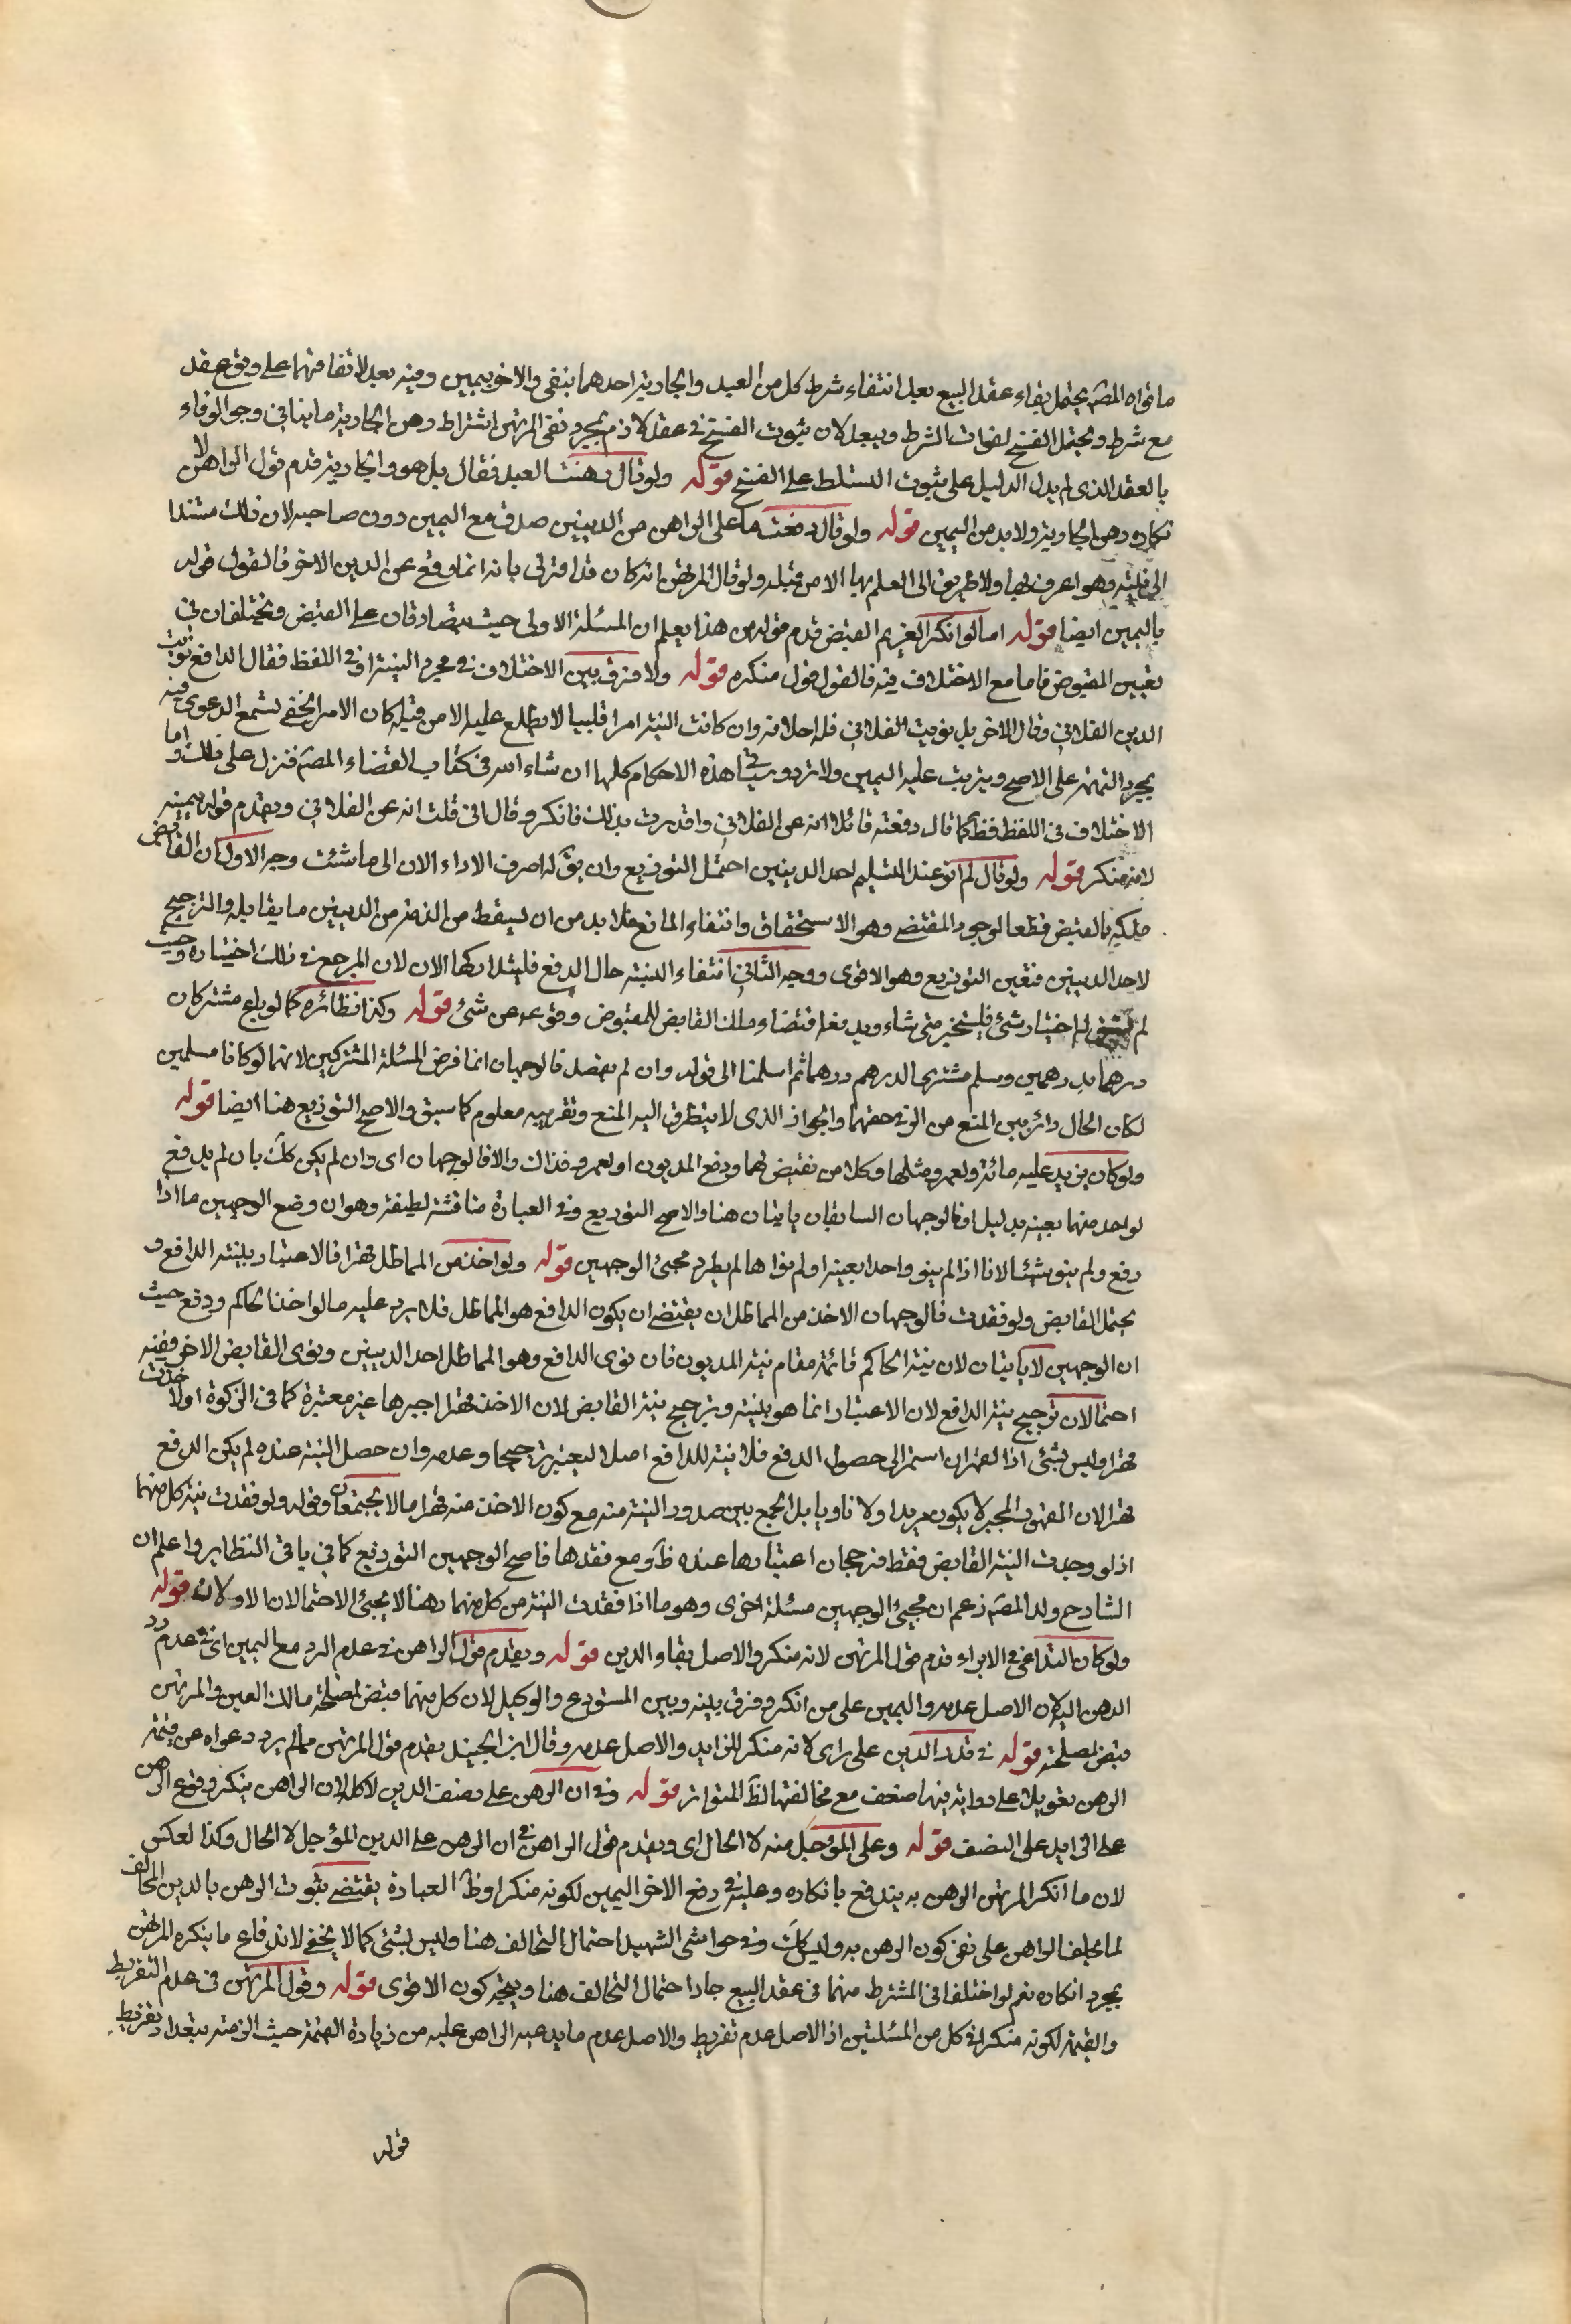 ما قواه المصّ يحتمل بقاء عقد البيع بعد انتفاء شرط كل من العبد والجارية احدهما بنفى والاخر بيمين وفيه بعد لاتفاقهما على وقوع عقد
مع شرط ويحتمل الفسخ لفوات الشرط ويبعد لان ثبوت الفسخ فى عقد لازم بمجرد نفى المرتهن اشتراط رهن الجارية ما ينافى وجوب الوفاء
بالعقد الذى لم يدل الدليل على ثبوت التسلط على الفسخ قوله ولو قال رهنت العبد فقال بل هو والجارية قدم قول الراهن لا
نكاره رهن الجارية ولا بد من اليمين قوله ولو قال دفعت ما على الراهن من الدينين صدق مع اليمين دون صاحبه لان ذلك مستندا
الى نيته وهو اعرف بها ولا طريق الى العلم بها الا من قبله ولو قال المرتهن انه كان قد اقر لى بانه انما وقع عن الدين الاخر فالقول قوله
باليمين ايضا قوله اما لو انكر الغريم القبض قدم قوله من هذا يعلم ان المسئلة الاولى حيث يتصادقان على القبض ويختلفان فى
تعيين المقبوض فاما مع الاختلاف فيه فالقول قول منكره قوله ولا فرق بين الاختلاف فى مجرد النية او فى اللفظ فقال الدافع نويت
الدين الفلانى وقال الاخر بل نويت الفلانى فله احلافه وان كانت النية امرا قلبيا لا يطلع عليه الا من قبله كان الامر الخفى تسمع الدعوى فيه
بمجرد التهمة على الاصح ويترتب عليه اليمين ولا ترد وسيأتى هذه الاحكام كلها ان شاء الله فى كتاب القضاء المصّ فنزل على ذلك واما
الاختلاف فى اللفظ فظّ كما قال دفعته قائلا انه عن الفلانى واقررت بذلك فانكر وقال انى قلت انه عن الفلانى ويقدم قوله بيمينه
لانه منكر قوله ولو قال لم انو عند التسليم احد الدينين احتمل التوزيع وان يقّ له اصرف الاداء الان الى ما شئت وجه الاول ان القابض
ملكه بالقبض قطعا لوجود المقتضى وهو الاستحقاق وانتفاء المانع فلا بد من ان يسقط من الذمة من الدينين ما يقابله والترجيح
لاحد الدينين فتعين التوزيع وهو الاقوى ووجه الثانى انتفاء النية حال الدفع فليتداركها الان لان المرجع فى ذلك اختياره وحيث
لم يسبق له اختيار شئ فليتخير متى شاء ويدفعه اقتضاء ملك القابض للمقبوض وقوعه عن شئ قوله وكذا نظائره كما لو باع مشتركان
درهما بدرهمين وسلم مشترى الدرهم درهما ثم اسلمنا الى قوله وان لم يقصد فالوجهان انما فرض المسئلة المشتركين لانهما لو كانا مسلمين
لكان الحال دائر بين المنع من الزيادة فى حقهما والجواز الذى لا يتطرق اليه المنع وتقريبه معلوم كما سبق والاصح التوزيع هنا ايضا قوله
ولو كان بزيد عليه مائة ولعمرو مثلها وكلا من يقبض لهما ودفع المديون او لعمرو فذاك والا فالوجهان اى وان لم يكن كلّ بان لم يدفع
لواحد منهما بعينه بدليل او فالوجهان السابقان ياتيان هنا والاصح التوزيع وفى العبارة مناقشة لطيفة وهو ان وضع الوجهين ما اذا
دفع ولم ينو شيئا لانا اذا لم ينو واحدا بعينه او لم نواها لم يطرد مجئ الوجهين قوله ولو اخذ من المماطل قهرا فالاعتبار بنية الدافع و
يحتمل القابض ولو فقدت فالوجهان الاخذ من المماطل ان يقتضى ان يكون الدافع هو المماطل فلا يرد عليه ما لو اخذ الحاكم ودفع حيث
ان الوجهين لا ياتيان لان نية الحاكم قائمة مقام نية المديون فان نوى الدافع وهو المماطل احد الدينين ونوى القابض الاخر ففيه
احتمالان ترجيح نية الدافع لان الاعتبار انما هو بنيته وترجيح نية القابض لان الاخذ قهرا جبرها غير معتبرة كما فى الزكوة او لاخذت
قهرا وليس بشئ اذا لقهر ان استمر الى حصول الدفع فلا نية للدافع اصلا ليعتبر ترجيحا وعدمه وان حصل النية عنده لم يكن الدفع
قهرا لان المقهور المجبر لا يكون مريدا ولا ناويا بل الجمع بين صدور النية منه مع كون الاخذ منه قهرا ما لا يجتمعان وقوله ولو فقدت نية كل منهما
اذ لو وجدت النية القابض فقط فترجحان اعتبارها عنده ظّ ومع فقدها فاصح الوجهين التوزيع كما فى باقى النظاير واعلم ان
الشارح ولد المصّ زعم ان مجئ الوجهين مسئلة اخرى وهو ما اذا فقدت النية من كل منهما وهنا لا يجئ الاحتمالان الاولان قوله
ولو كان التداعى فى الابراء قدم قول المرتهن لانه منكر والاصل بقاء الدين قوله ويقدم قول الراهن فى عدم الرد مع اليمين اى فى عدم رد
الرهن اليه لان الاصل عدمه واليمين على من انكر وفرق بينه وبين المستودع والوكيل لان كل منهما قبض لمصلحة مالك العين والمرتهن
قبض لمصلحته قوله فى قدر الدين على راى لانه منكر للزايد والاصل عدمه وقال ابن الجنيد يقدم قول المرتهن مما لم يرد دعواه عن قيمة
الرهن تعويلا على رواية فيها ضعف مع مخالفتها لظّ المتواتر قوله وفى ان الرهن على نصف الدين لا كله لان الراهن ينكر وقوع الرهن
على الزايد على النصف قوله وعلى المؤجل منه لا الحال اى ويقدم قول الراهن فى ان الرهن على الدين المؤجل لا الحال وكذا لعكس
لان ما انكر المرتهن الرهن به يندفع بانكاره وعليه فى دفع الاخر اليمين لكونه منكرا وظّ العبارة يقتضى ثبوت الرهن بالدين المخالف
لما يحلف الراهن على نفى كون الرهن به وليس كلّ وفى حواشى الشهيد احتمال التحالف هنا وليس بشئ كما لا يخفى لاندفاع ما ينكره المرتهن
بمجرد انكاره نعم لو اختلفا فى المشترط منهما فى عقد البيع جاد احتمال التحالف هنا ويتجه كون الاقوى قوله وقول المرتهن فى عدم التفريط
والقيمة لكونه منكرا فى كل من المسئلتين اذ الاصل عدم تفريط والاصل عدم ما يدعيه الراهن عليه من زيادة القيمة حيث الزمته بتعد او تفريط
قوله